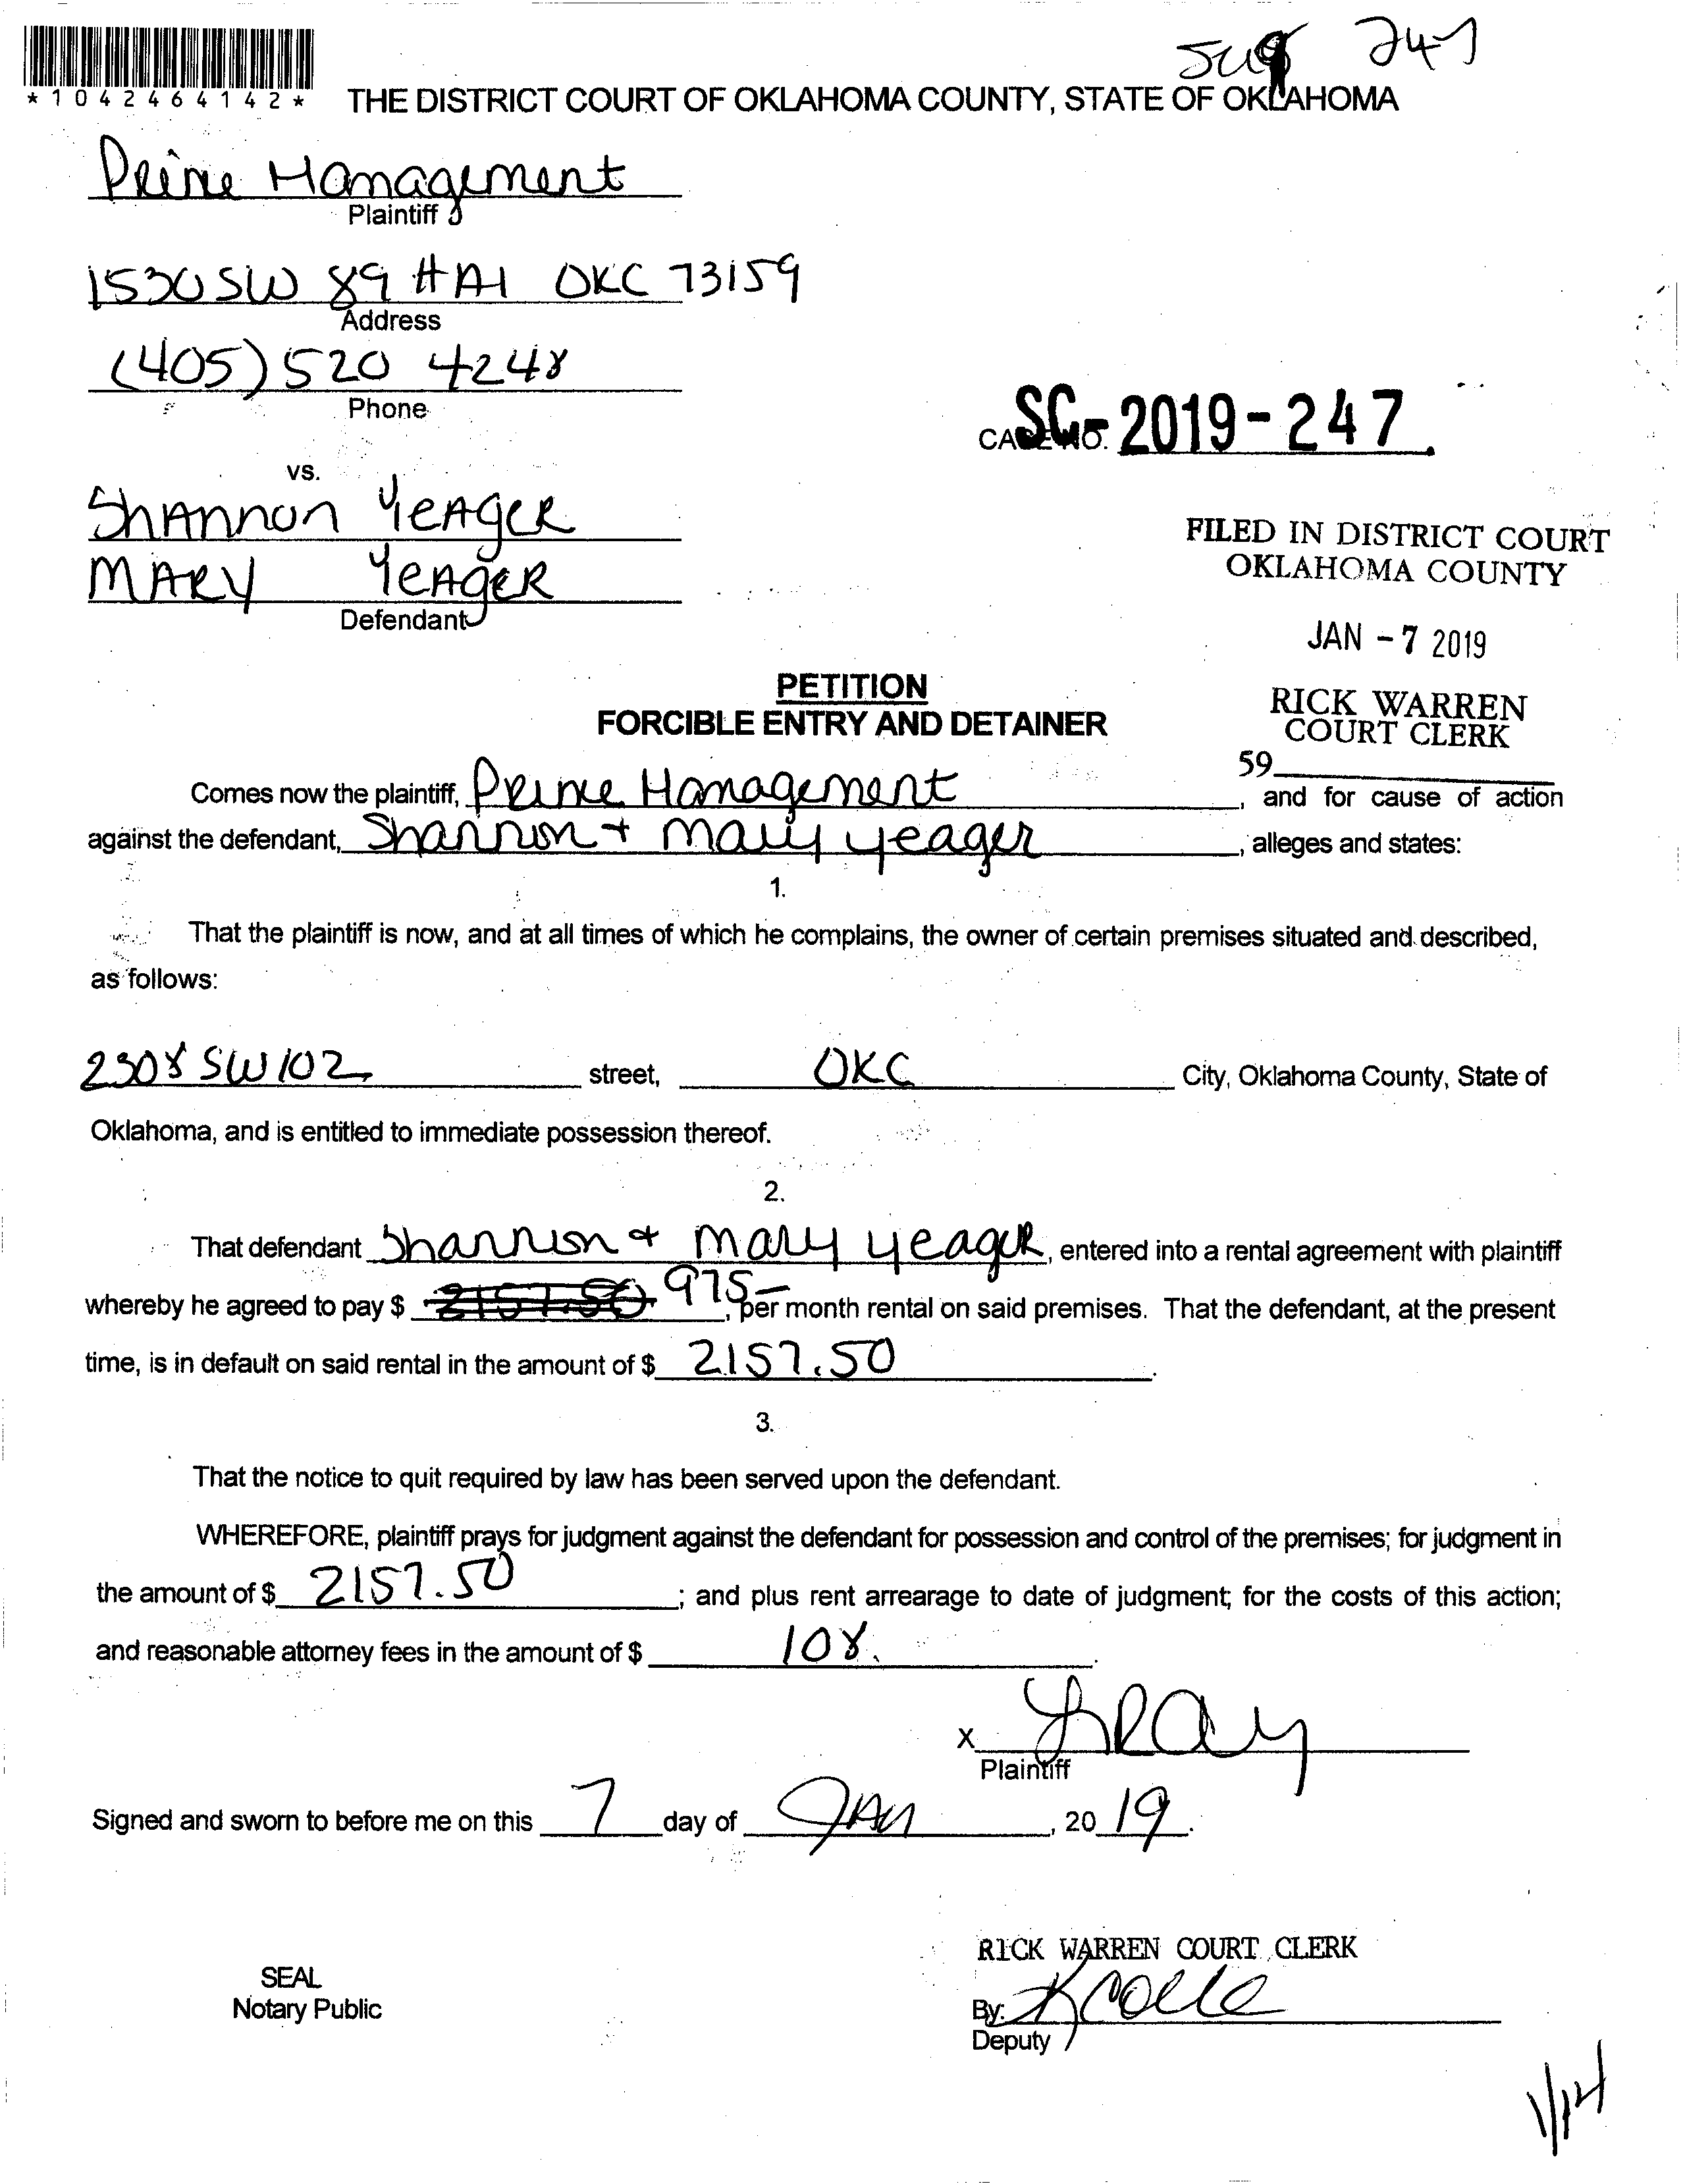 247
*1042464142*
THE DISTRICT COURT OF OKLAHOMA COUNTY, STATE OF OKLAHOMA
Prime Management
Plaintiff
1530 SW 89 #A1 OKC 73159
Address
(405) 520 4248
Phone
CASE NO. SC-2019-247.
vs.
Shannon Yeager
Mary Yeager
Defendant
FILED IN DISTRICT COURT
OKLAHOMA COUNTY
JAN -7 2019
RICK WARREN
COURT CLERK
59
PETITION
FORCIBLE ENTRY AND DETAINER
Comes now the plaintiff, Prime Management, and for cause of action
against the defendant, Shannon + Mary Yeager, alleges and states:
1.
That the plaintiff is now, and at all times of which he complains, the owner of certain premises situated and described,
as follows:
2308 SW 102 street, OKC City, Oklahoma County, State of
Oklahoma, and is entitled to immediate possession thereof.
2.
That defendant Shannon + Mary Yeager, entered into a rental agreement with plaintiff
whereby he agreed to pay $ 2157.50 975-, per month rental on said premises. That the defendant, at the present
time, is in default on said rental in the amount of $ 2157.50.
3.
That the notice to quit required by law has been served upon the defendant.
WHEREFORE, plaintiff prays for judgment against the defendant for possession and control of the premises; for judgment in
the amount of $ 2157.50; and plus rent arrearage to date of judgment; for the costs of this action;
and reasonable attorney fees in the amount of $ 108..
X LRay
Plaintiff
Signed and sworn to before me on this 7 day of Jan, 20 19.
RICK WARREN COURT CLERK
SEAL
Notary Public
By:
Deputy
1/14